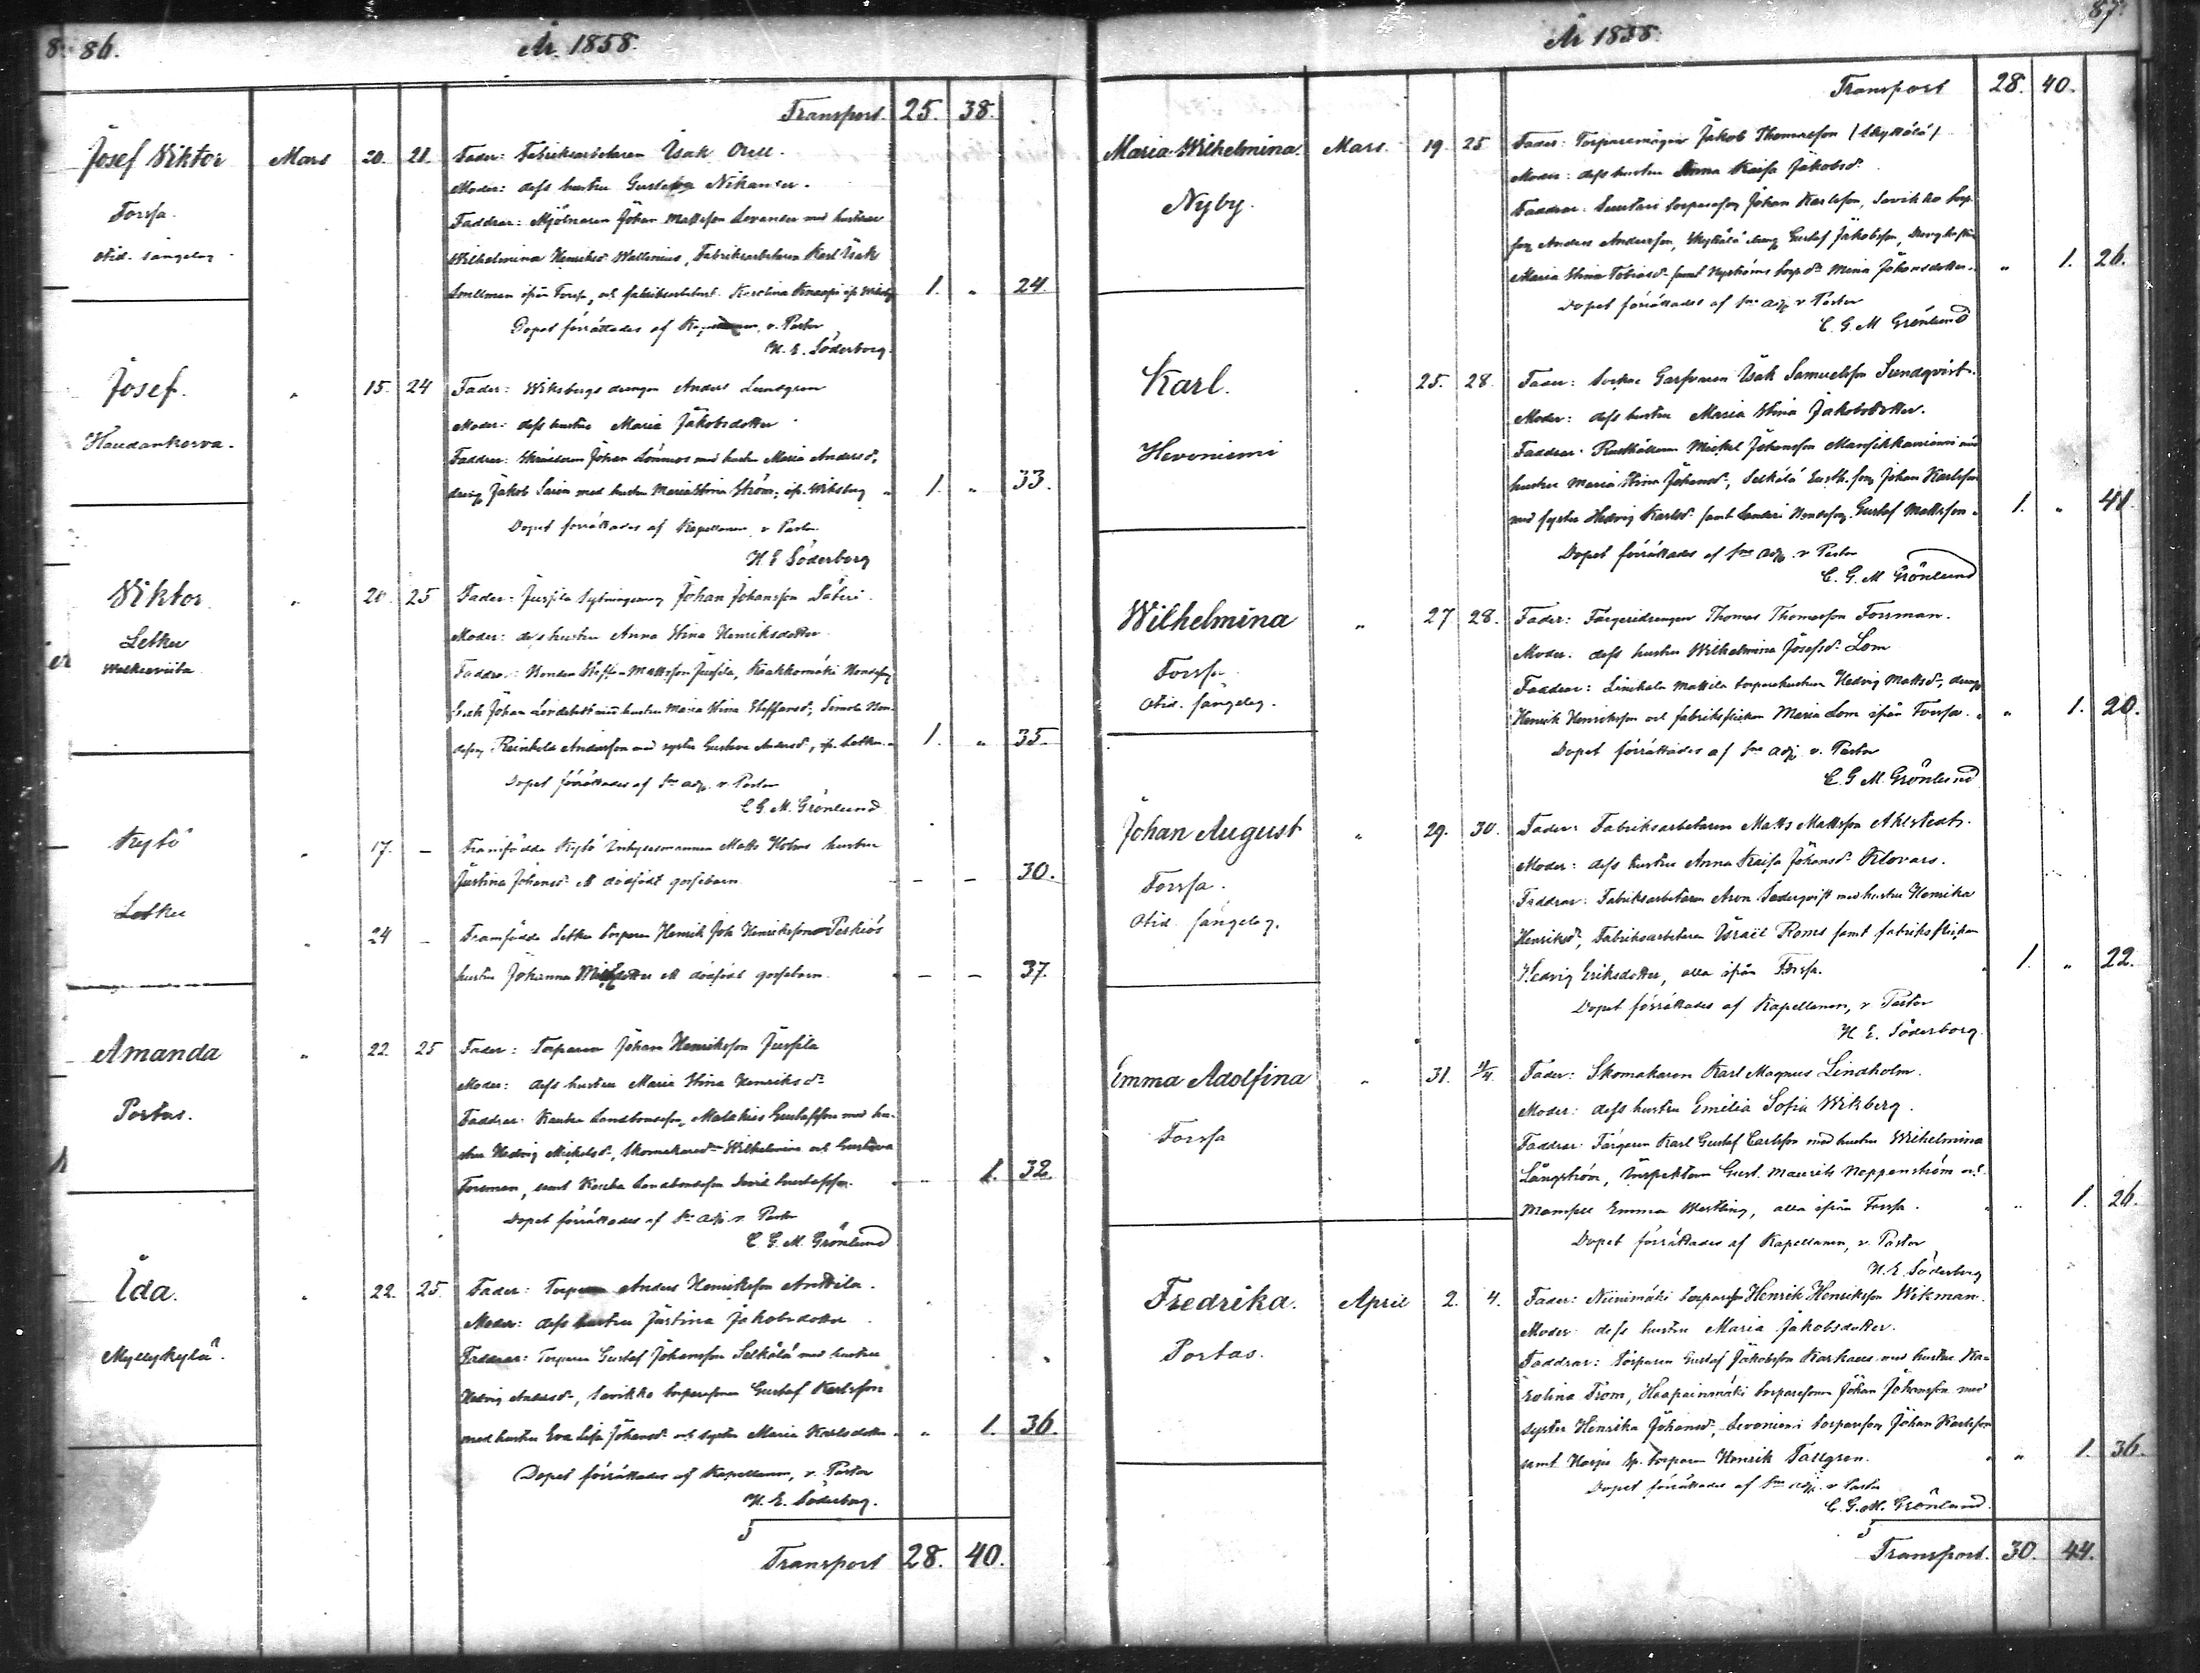 86.
År 1858.
Transport. 25. 38.
Josef Viktor Mars 20. 21. Fader: Fabriksarbetaren Isak Orell.
Moder: dess hustru Gustava Nikander.
Forssa.
Faddrar: Mjölnaren Johan Mattsson Levander med hustrun
otid. sängelag.
Wilhelmina Henriksd. Wallenius, Fabriksarbetaren Karl Isak
Smellman ifrån Forssa, och Karolina 1. " 24.
Dopet förrättades af Kapellanen, v. Pastor
H. E. Söderborg.
Josef. " 15. 24 Fader: Wiksbergs drengen Anders Lundgren
Moder: dess hustru Maria Jakobsdotter
Haudankorva.
Faddrar: Johan Lönnroos med hustru Maria Andersd.
dreng Jakob med hustru Maria Stina Ström, ifr. Wiksberg " 1. " 33.
Dopet förrättades af Kapellanen, v. Pastor
H E Söderborg
Viktor. " 20 25 Fader: Jussila Johan Johansson Säteri.
Letku
Moder: dess hustru Anna Stina Henriksdotter
Faddrar: Mattsson Jussila,
Johan med hustru Maria Stina Steffansd.
Reinhold Andersson med syster Gustava Andersd., ifr. Letku. 1. " 35.
Dopet förrättades af adj. v. Pastor
C G. M. Grönlund
Kytö " 17. – Framfödde Kytö Inhysesmannen Matts Holms hustru
Justina Johansd. ett dödfödt gossebarn – – 30.
Letku
" 24 – Framfödde Letku torparen Henrik Joh Henriksson Perkiös
hustru Johanna ett dödfödt gossebarn. – – 37.
Amanda " 22. 25 Fader: Torparen Johan Henriksson Jussila
Moder: dess hustru Maria Stina Henriksd.
Portas.
Faddrar: Malakias Gustafsson med hu-
stru Hedvig Mickelsd., Wilhelmina och Gustava
Forsman, samt Gustafsson. " 1. 32.
Dopet förrättades af adj. v. Pastor
C G. M. Grönlund
Ida. " 22. 25. Fader: Torparen Anders Henriksson Anttila.
Moder: dess hustru Justina Jakobsdotter
Myllykylä.
Faddrar: Torparen Gustaf Johansson Selkälä med hustru
Hedvig Andersd., Savikko torparesonen Gustaf Karlsson
med hustru Eva Lisa Johansd. och syster Maria Karlsdotter " 1. 36.
Dopet förrättades af Kapellanen, v. Pastor
H. E. Söderborg.
Transport 28. 40.
87.
År 1858.
Transport 28. 40.
Maria Wilhelmina. Mars. 19. 25 Fader: Torparemågen Jakob Thomasson
Moder: dess hustru Anna Kaisa Jakobsd.
Nyby.
Faddrar: Johan Karlsson, Savikko
Anders Andersson, dreng Gustaf Jakobsson,
Maria Stina Tobiasd. samt Mina Johansdotter. " 1. 26.
Dopet förrättades af adj. v Pastor
C. G. M Grönlund
Karl. 25. 28. Fader: Garfvaren Isak Samuelsson Sundqvist.
Moder: dess hustru Maria Stina Jakobsdotter.
Hevoniemi
Faddrar: Rusthållaren Mickel Johansson med
hustru Maria Stina Johansd., Selkälä Johan Karlsson
med syster Hedvig Karlsd. samt Gustaf Mattsson. 1. " 41.
Dopet förrättades af adj. v Pastor
C. G. M Grönlund
Wilhelmina " 27 28. Fader: Färgeridrengen Thomas Thomasson Forsman.
Moder. dess hustru Wilhelmina Josefsd. Lom
Forssa.
Faddrar: Linikkala Mattila torparehustrun Hedvig Mattsd., dreng
Otid. sängelag.
Henrik Henriksson och fabriksflickan Maria Lom ifrån Forssa. " 1. 20.
Dopet förrättades af adj. v. Pastor
C G M. Grönlund
Johan August " 29. 30. Fader: Fabriksarbetaren Matts Mattsson Ahlstedt.
Moder: dess hustru Anna Kaisa Johansd. Klovars.
Forssa.
Faddrar: Fabriksarbetaren Aron Sederqvist med hustru Henrika
Otid. sängelag.
Henriksd., Fabriksarbetaren Israël Roms samt fabriksflickan
Hedvig Eriksdotter, alla ifrån Forssa. 1. " 22.
Dopet förrättades af Kapellanen, v Pastor
H E. Söderborg.
Emma Adolfina " 31. 1/4. Fader: Skomakaren Karl Magnus Lindholm.
Moder: dess hustru Emilia Sofia Wiksberg.
Forssa
Faddrar: Färgaren Karl Gustaf Carlsson med hustru Wilhelmina
Långström, Inspektoren Gust. Maurits Neppenström och
Mamsell Emma Westling, alla ifrån Forssa. " 1. 26.
Dopet förrättades af Kapellanen, v. Pastor
H. E. Söderborg
Fredrika. April 2. 4. Fader: Niinimäki Henrik Henriksson Wikman.
Moder dess hustru Maria Jakobsdotter.
Portas.
Faddrar: Torparen Gustaf Jakobsson med hustru Ka-
rolina From, Haapainmäki torparesonen Johan Johansson med
syster Henrika Johansd., Levoniemi torpareson Johan Karlsson
samt torparen Henrik Tallgren. " 1. 36.
Dopet förrättades af adj. v Pastor
C. G. M. Grönlund.
Transport. 30. 44.